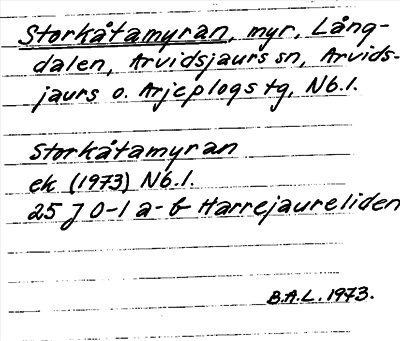 Storkåtamyran, myr, Lång-
dalen, Arvidsjaurs sn, Arvids-
jaurs o. Arjeplogs tg, Nb.l.
Storkåtamyran
ek (1973) Nb.l.
25 J 0-1 a-b Harrejaureliden
B.A.L. 1973.